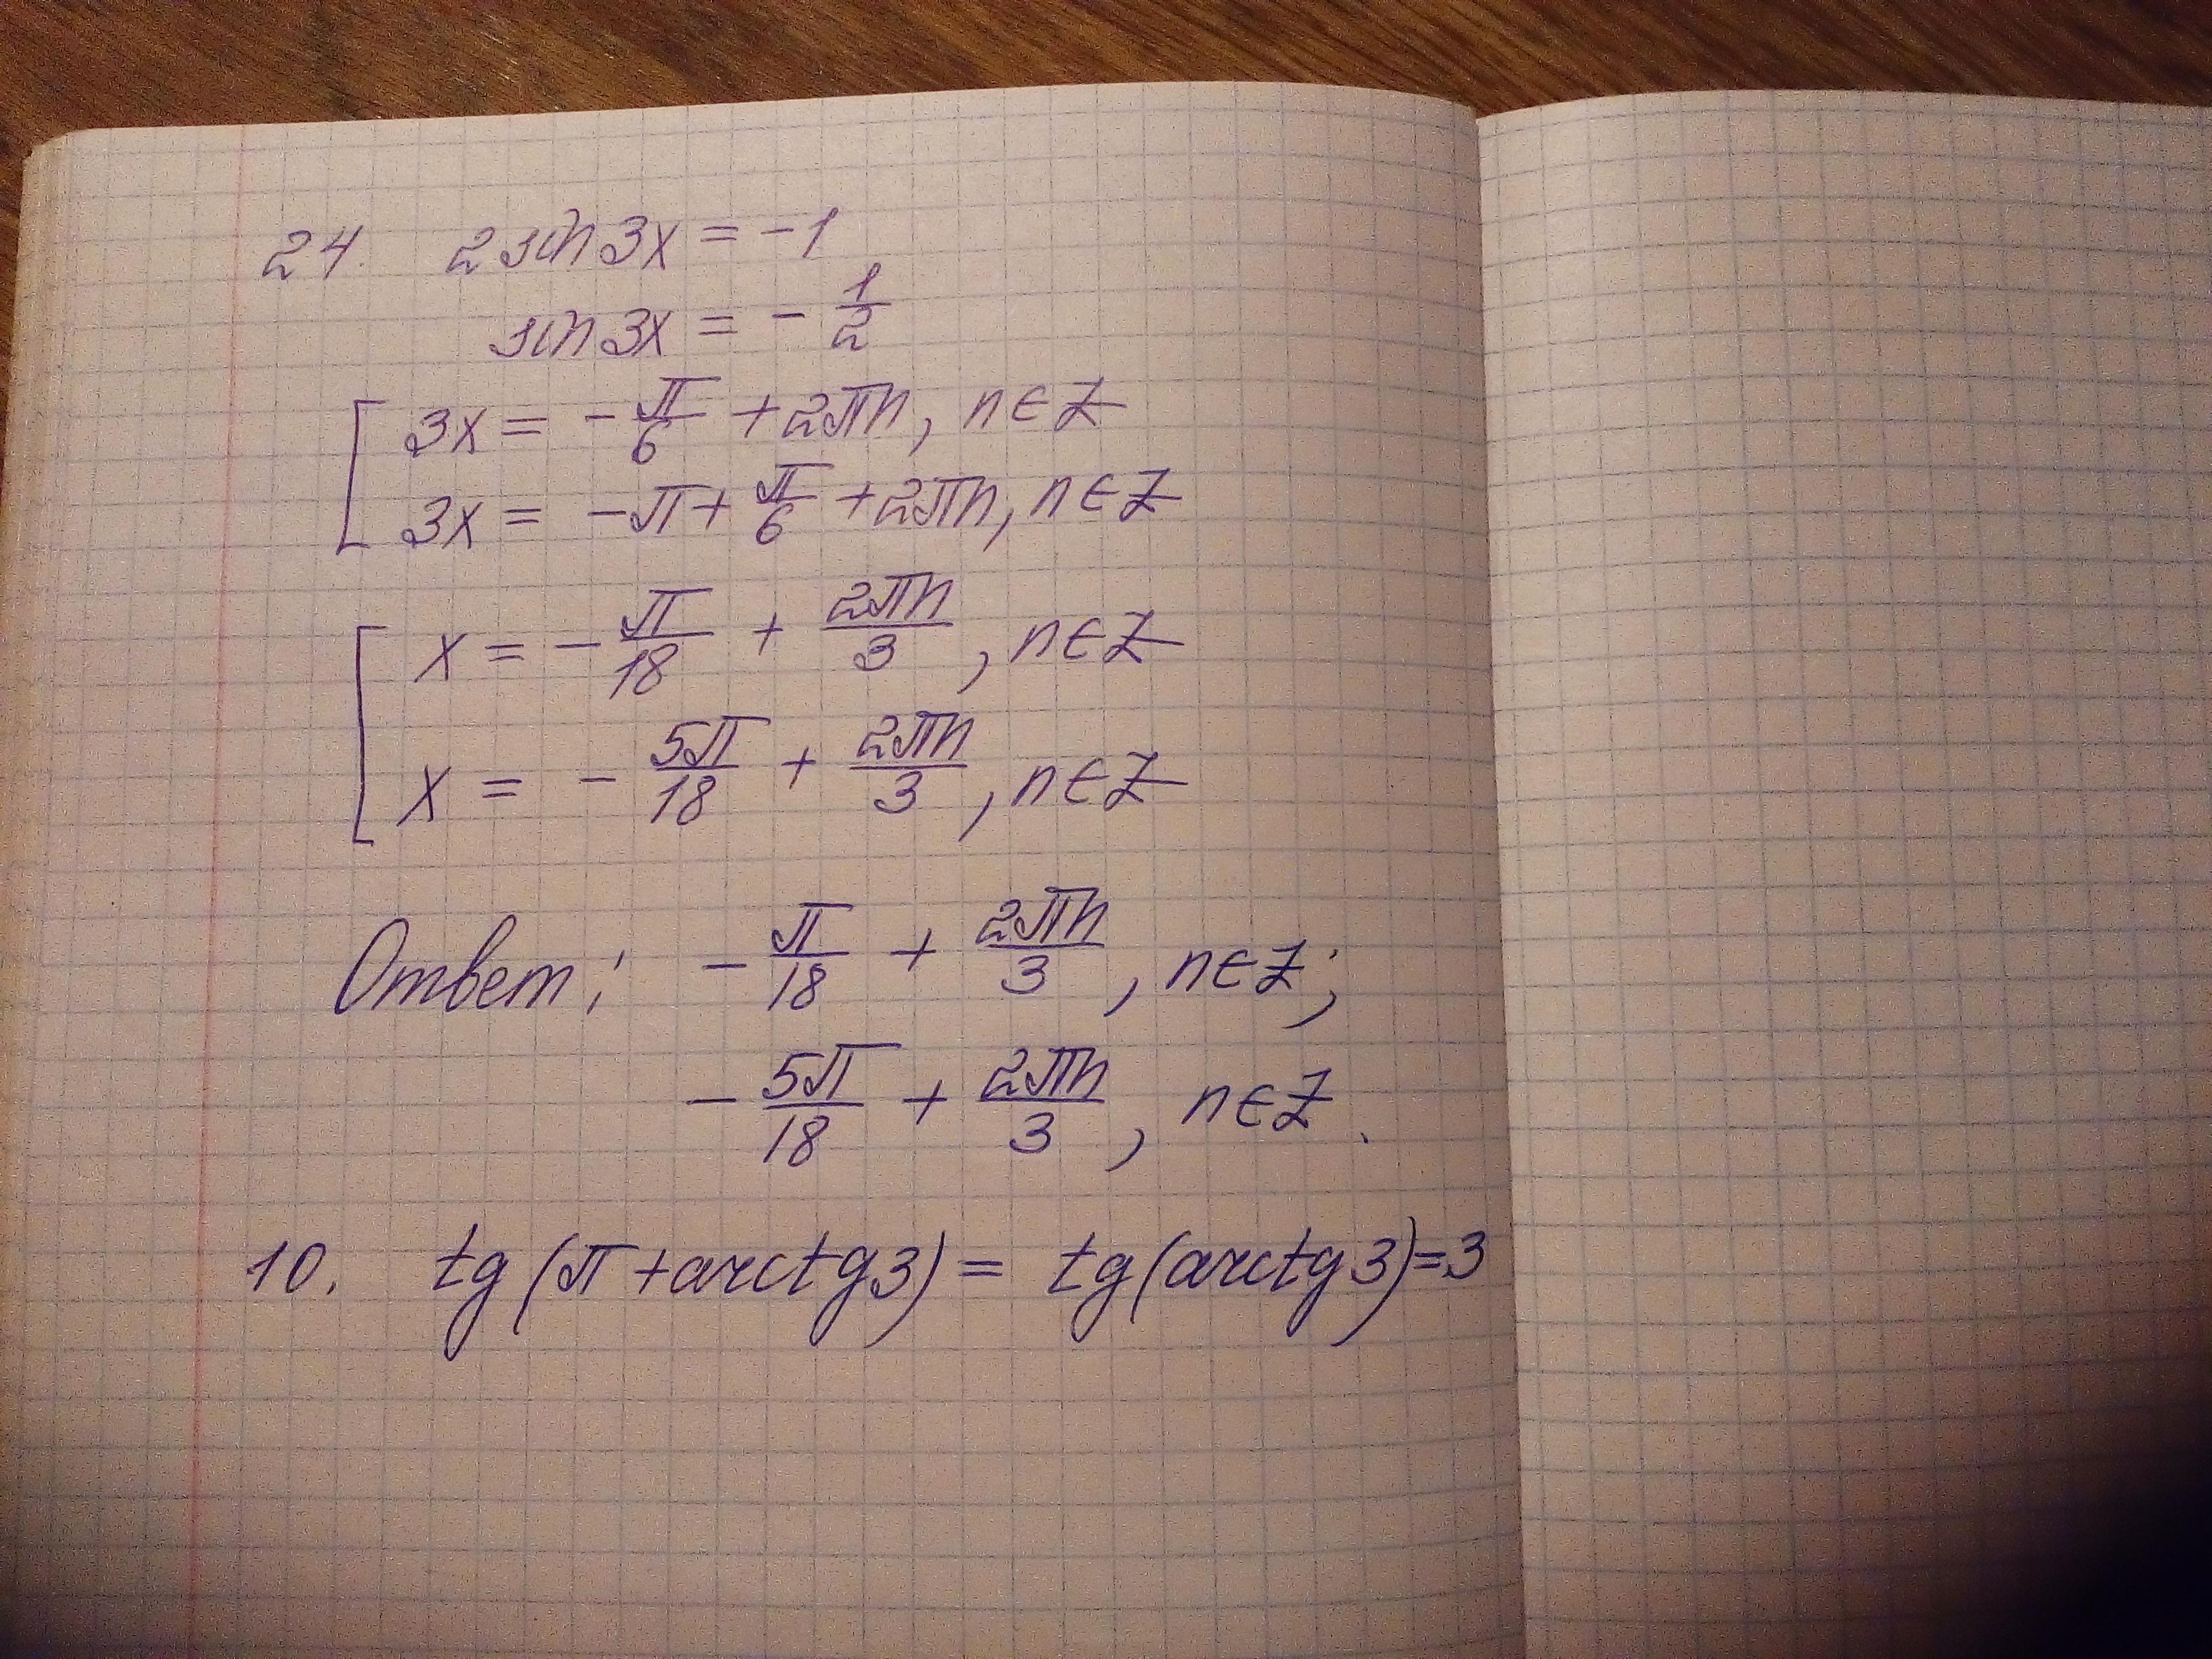 24. 2 sin 3x = -1
sin 3x = - 1/2
[ 3x = - π/6 + 2πn, n ∈ Z
3x = -π + π/6 + 2πn, n ∈ Z
[ x = - π/18 + 2πn/3, n ∈ Z
x = - 5π/18 + 2πn/3, n ∈ Z
Ответ: - π/18 + 2πn/3, n ∈ Z;
- 5π/18 + 2πn/3, n ∈ Z.
10. tg(π + arctg 3) = tg(arctg 3) = 3